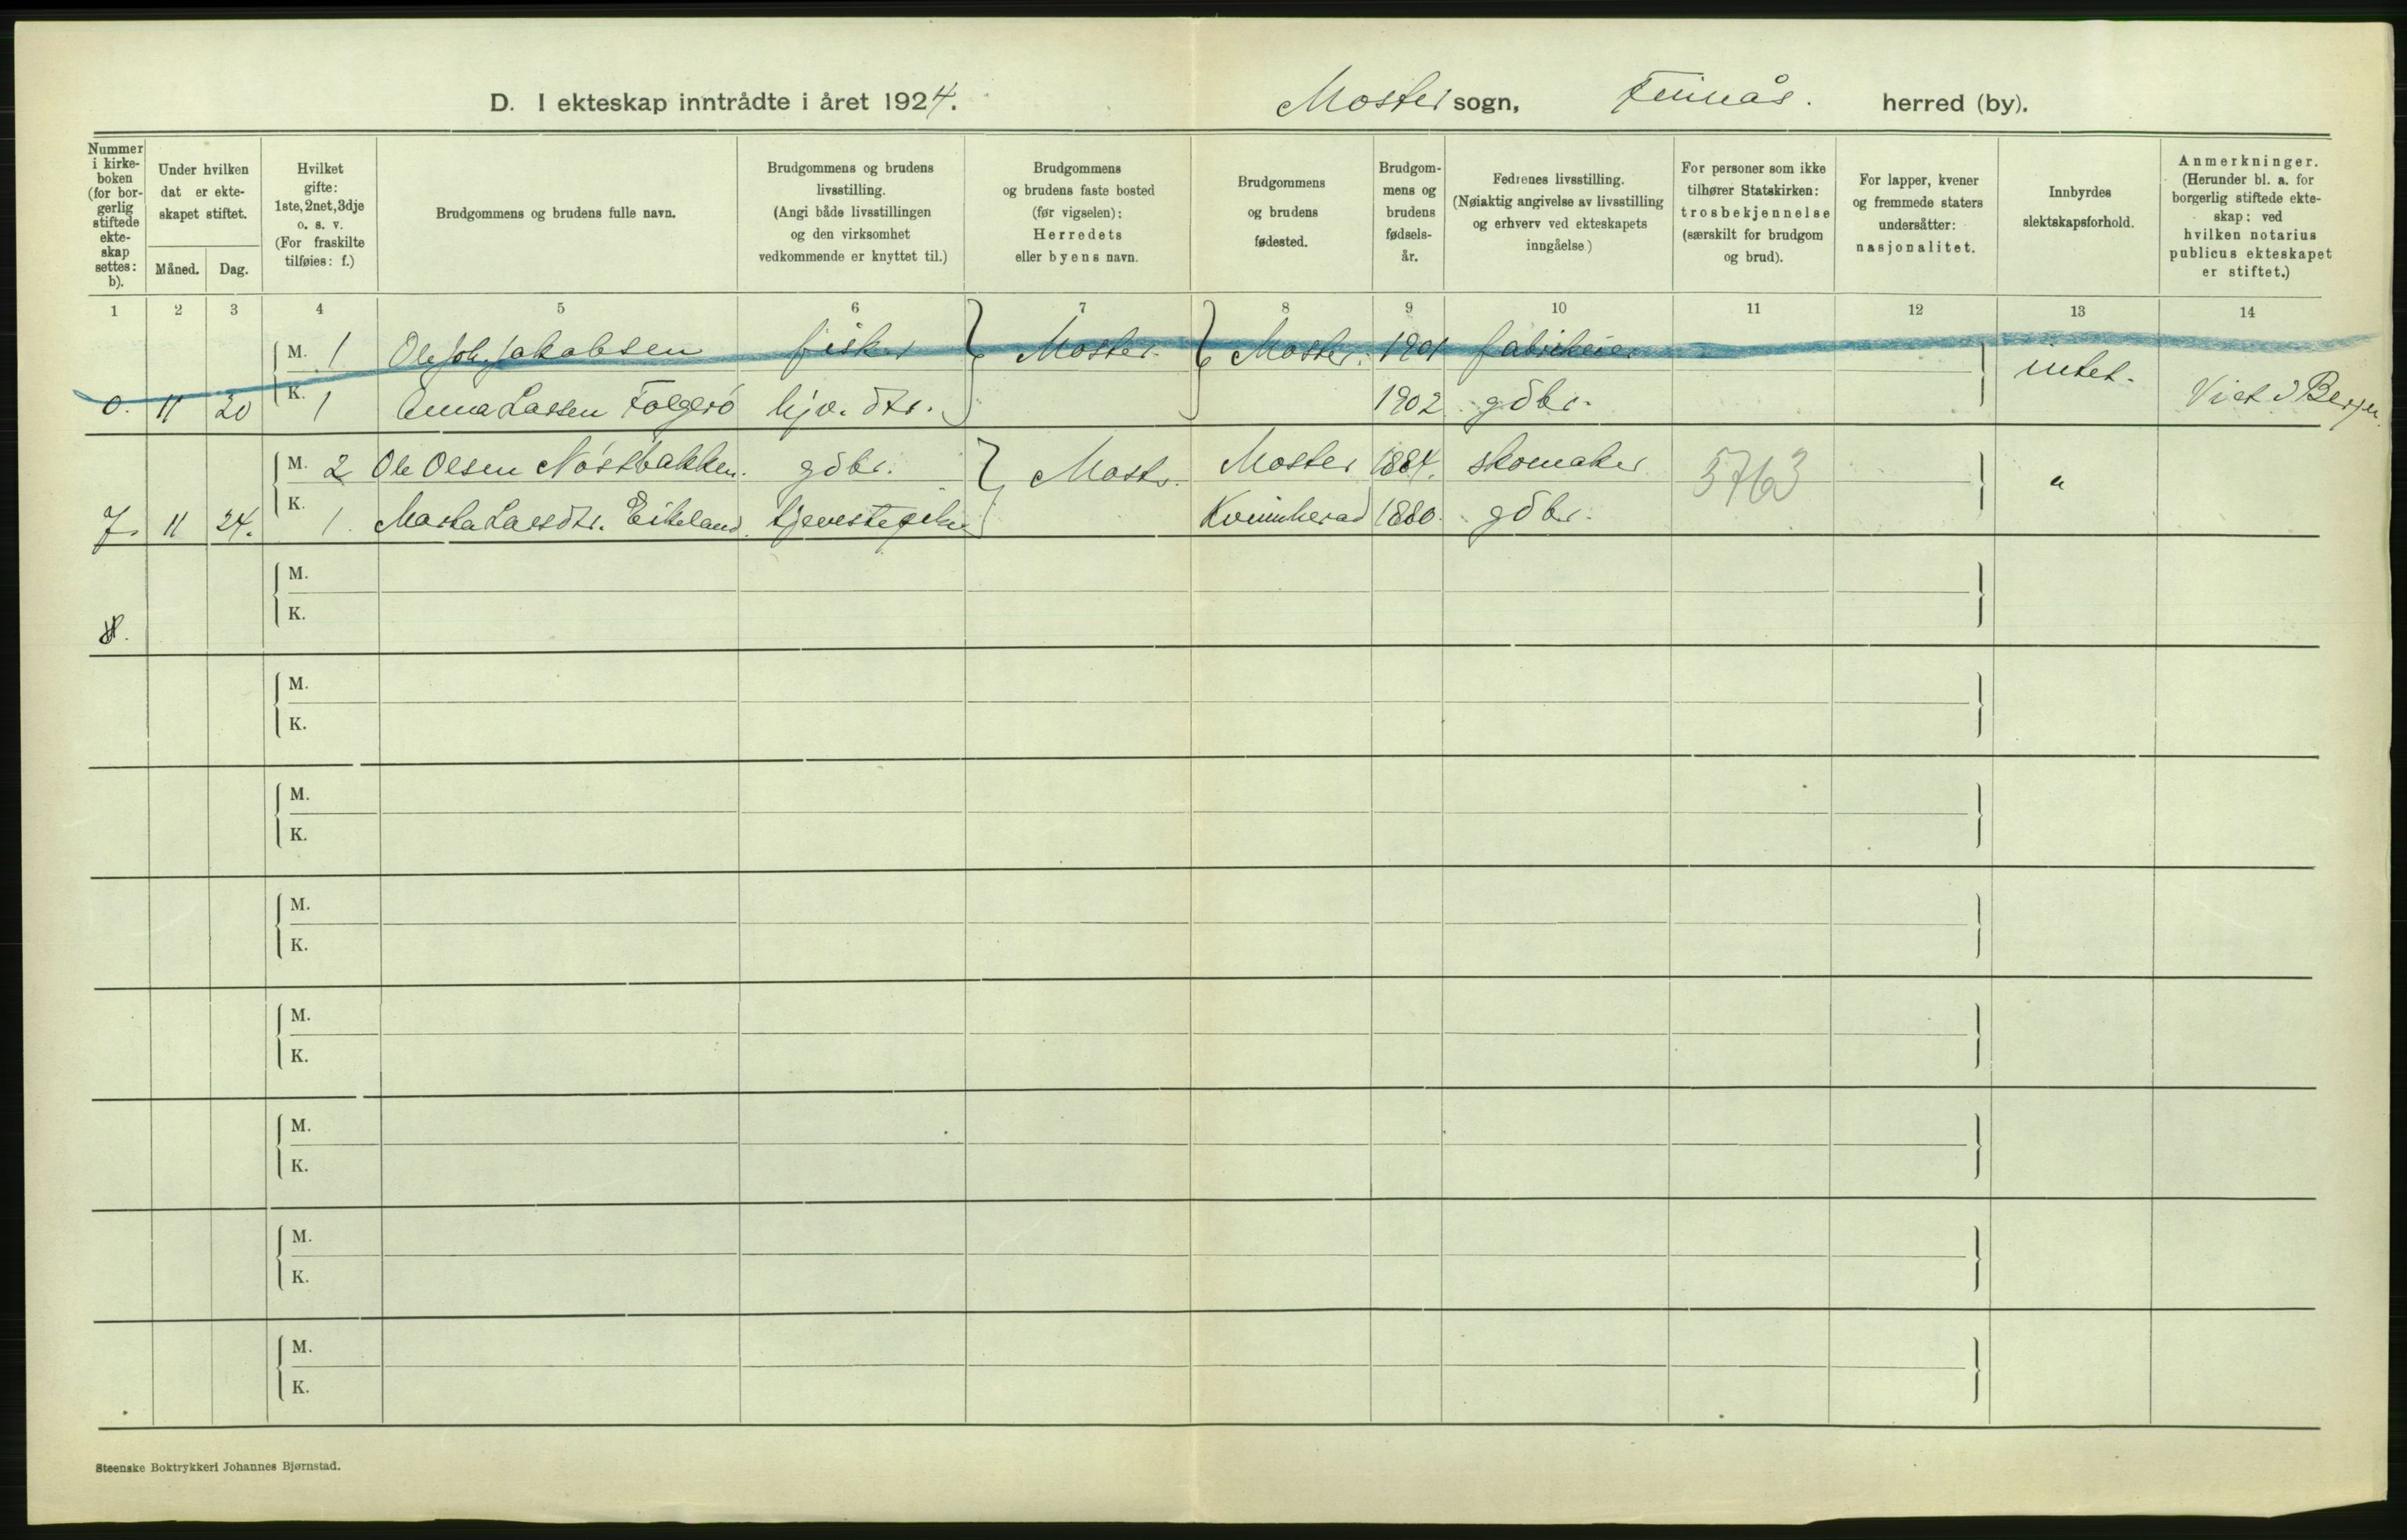 D. I ekteskap inntrådte i året 1924. Moster sogn, Finnås. herred (by).
Nummer i kirkeboken (for borgerlig stiftede ekteskap settes: b).
Under hvilken dat er ekteskapet stiftet.
Måned. Dag.
Hvilket gifte: 1ste, 2net, 3dje o. s. v. (For fraskilte tilføies: f.)
Brudgommens og brudens fulle navn.
Brudgommens og brudens livsstilling. (Angi både livsstillingen og den virksomhet vedkommende er knyttet til.)
Brudgommens og brudens faste bosted (før vigselen): Herredets eller byens navn.
Brudgommens og brudens fødested.
Brudgommens og brudens fødselsår.
Fedrenes livsstilling. (Nøiaktig angivelse av livsstilling og erhverv ved ekteskapets inngåelse)
For personer som ikke tilhører Statskirken: trosbekjennelse (særskilt for brudgom og brud).
For lapper, kvener og fremmede staters undersåtter: nasjonalitet.
Innbyrdes slektskapsforhold.
Anmerkninger. (Herunder bl. a. for borgerlig stiftede ekteskap: ved hvilken notarius publicus ekteskapet er stiftet.)
1 2 3 4 5 6 7 8 9 10 11 12 13 14
M. 1 Ole Joh. Jakobsen fisker Moster. Moster. 1901 fabrikeier
0. 11 20 K. 1 Anna Larsen Folgerø hjv. dtr. 1902 gdbr. intet. Viet i Bergen
M. 2 Ole Olsen Nóstbakken. gdbr. Mostr. Moster 1884. skomaker 5763 "
7. 11 24. K. 1. Marta Larsdtr. Eikeland. tjenestepike Kvinnherad 1880. gdbr.
M.
8. K.
M.
K.
M.
K.
M.
K.
M.
K.
M.
K.
M.
K.
M.
K.
Steenske Boktrykkeri Johannes Bjørnstad.